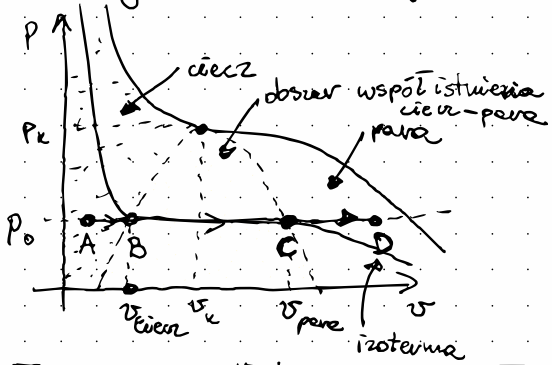 P
ciecz
obszar współistnienia
ciecz-para
para
Pk
P0
A
B
C
D
v ciecz
vk
v para
v
izoterma